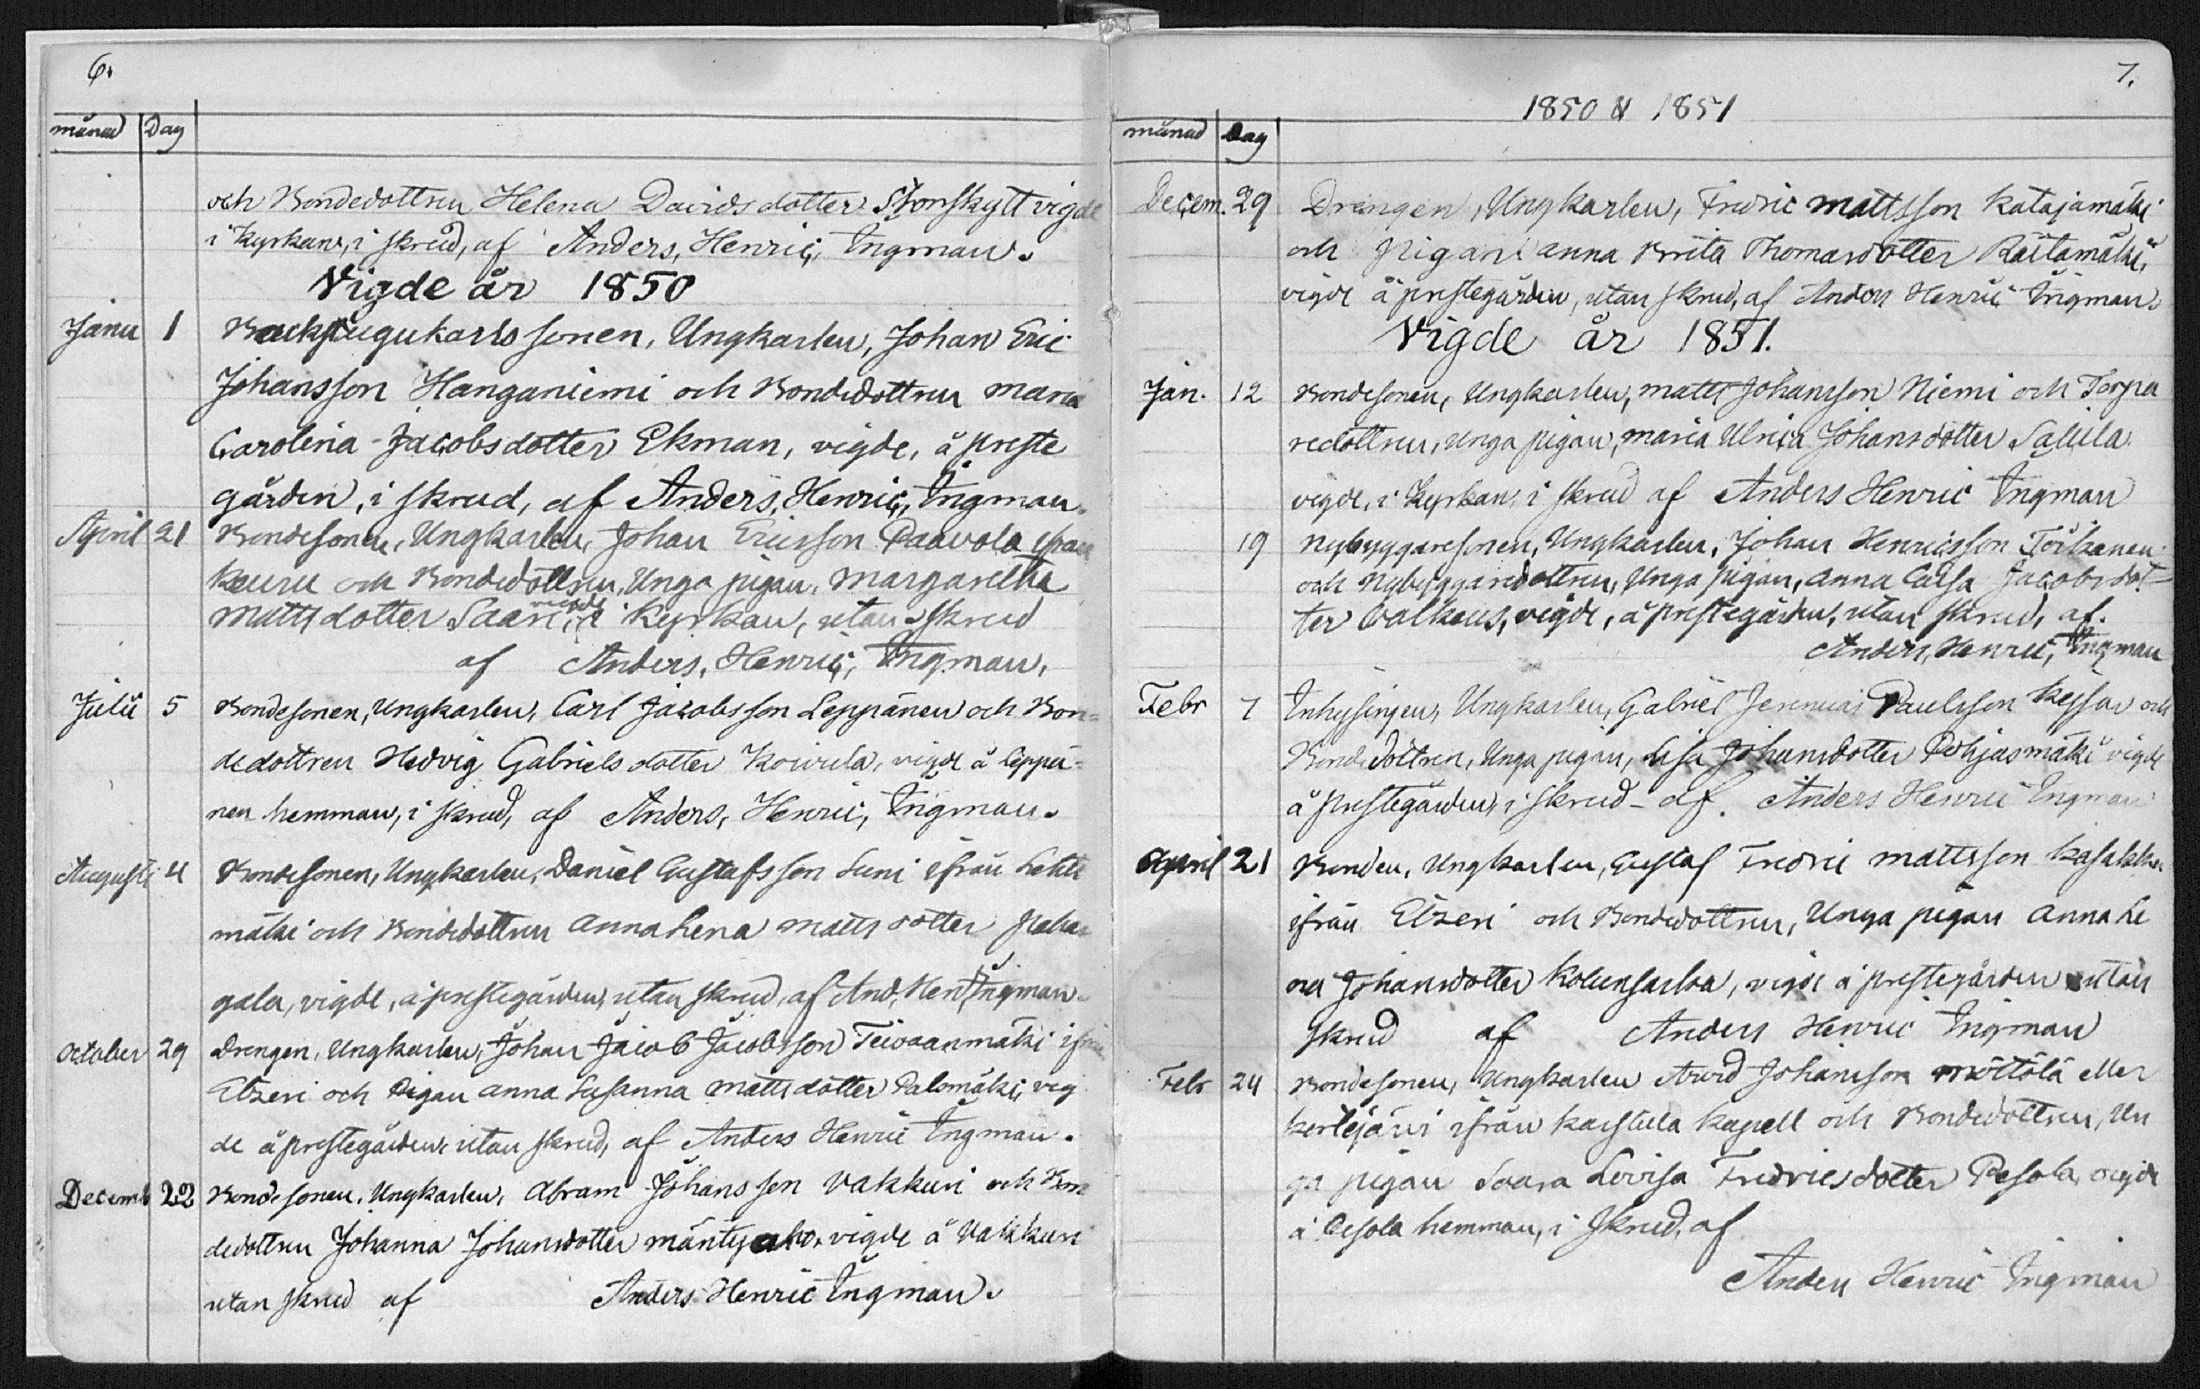 6.
månad Dag
och Bondedottren Helena Davidsdotter Skonskytt vigde
i kyrkan, i skrud, af Anders, Henric, Ingman.
Vigde år 1850
Janu 1 Backstugukarlssonen, Ungkarlen, Johan Eric
Johansson Hanganiemi och Bondedottren Maria
Carolina Jacobsdotter Ekman, vigde, å preste
gården, i skrud, af Anders, Henric, Ingman.
April 21 Bondesonen, Ungkarlen, Johan Ericsson Paavola ifrån
Keuru och Bondedottren, Unga pigan, Margaretha
Mattsdotter Saari, vigde i Kyrkan, utan skrud
af Anders, Henric, Ingman.
Julii 5 Bondesonen, Ungkarlen, Carl Jacobsson Leppänen och Bon=
dedottren Hedvig Gabrielsdotter Koivula, vigde å Leppä-
nen hemman, i skrud, af Anders, Henric, Ingman.
Augusti 4 Bondesonen, Ungkarlen, Daniel Gustafsson Suni ifrån Lehti
mäki och Bondedottren Anna Lena Matts dotter
vigde, å prestegården, utan skrud, af And, Hen, Ingman.
October 29 Drengen, Ungkarlen, Johan Jacob Jacobsson Teivaanmäki ifrån
Etzeri och Pigan Anna Susanna Mattsdotter Palomäki, vig
de å prestegården utan skrud, af Anders Henric Ingman.
Decemb 22 Bondesonen, Ungkarlen, Abram Johansson Vakkuri och Bon
dedottren Johanna Johansdotter Mäntyaho, vigde å Vakkuri
utan skrud af Anders Henric Ingman.
7.
1850 & 1851
månad Dag
Decem. 29 Drengen, Ungkarlen, Fredric Mattsson Katajamäki
och Pigan Anna Brita Thomasdotter Raitamäki,
vigde å prestegården, utan skrud, af Anders Henric Ingman.
Vigde år 1851.
Jan. 12 Bondesonen, Ungkarlen, Matts Johansson Niemi och Torpa
redottren, Unga pigan, Maria Ulrica Johansdotter Salila
vigde, i Kyrkan, i skrud af Anders Henric Ingman
19 Nybyggaresonen, Ungkarlen, Johan Henricsson Törkänen
och Nybyggaredottren, Unga Pigan, Anna Caisa Jacobsdot-
ter Valkeus, vigde, å prestegården, utan skrud, af.
Anders, Henric, Ingman
Febr 7 Inhysingen, Ungkarlen, Gabriel Jeremias Paulsson Kessar och
Bondedottren, Unga pigan, Lisa Johansdotter Pohjasmäki vigde
å prestegården, i skrud - af. Anders Henric Ingman
April 21 Bonden, Ungkarlen, Gustaf Fredric Mattsson
ifrån Etzeri och Bondedottren, Unga pigan Anna Le
na Johansdotter vigde å prestegården utan
skrud af Anders Henric Ingman
Febr 24 Bondesonen, Ungkarlen Arvid Johansson Möttölä eller
Kertejärvi ifrån Karstula Kapell och Bondedottren, Un
ga pigan Saara Lovisa Fredricsdotter Pesola, vigde
å Pesola hemman, i skrud, af
Anders Henric Ingman